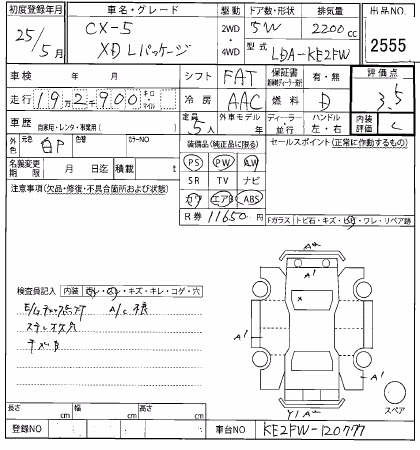 初度登録年月 車名・グレード 駆動 ドア数・形状 排気量 出品NO
25年 5月 CX-5 2WD 5W 2200cc 2555
XD Lパッケージ 4WD 型式 LDA-KE2FW
車検 年 月 シフト FAT 保証書 有・無 評価点
走行 19万2千900 キロ マイル 冷房 AAC 燃料 D 3.5
車歴 自家用・レンタ・事業用( ) 定員 5人 外車モデル 年 ディーラー・並行 ハンドル 左・右 内装評価 C
外色 元色 白P 色替 カラーNO 装備品(純正品に限る) セールスポイント(正常に作動するもの)
PS PW AW
名義変更期限 月 日迄 積載 t SR TV ナビ
注意事項(欠品・修復・不具合箇所および状態) カワ エアB ABS
R券 11650円 Fガラス トビ石・キズ・ヒビ・ワレ・リペア跡
A2
A1
検査員記入 内装 汚レ・スレ・キズ・キレ・コゲ・穴 X
E/gチェック点灯 A/C
A1
A1
Y1 A2 スペア
長さ cm 幅 cm 高さ cm
登録NO 車台NO KE2FW-120777